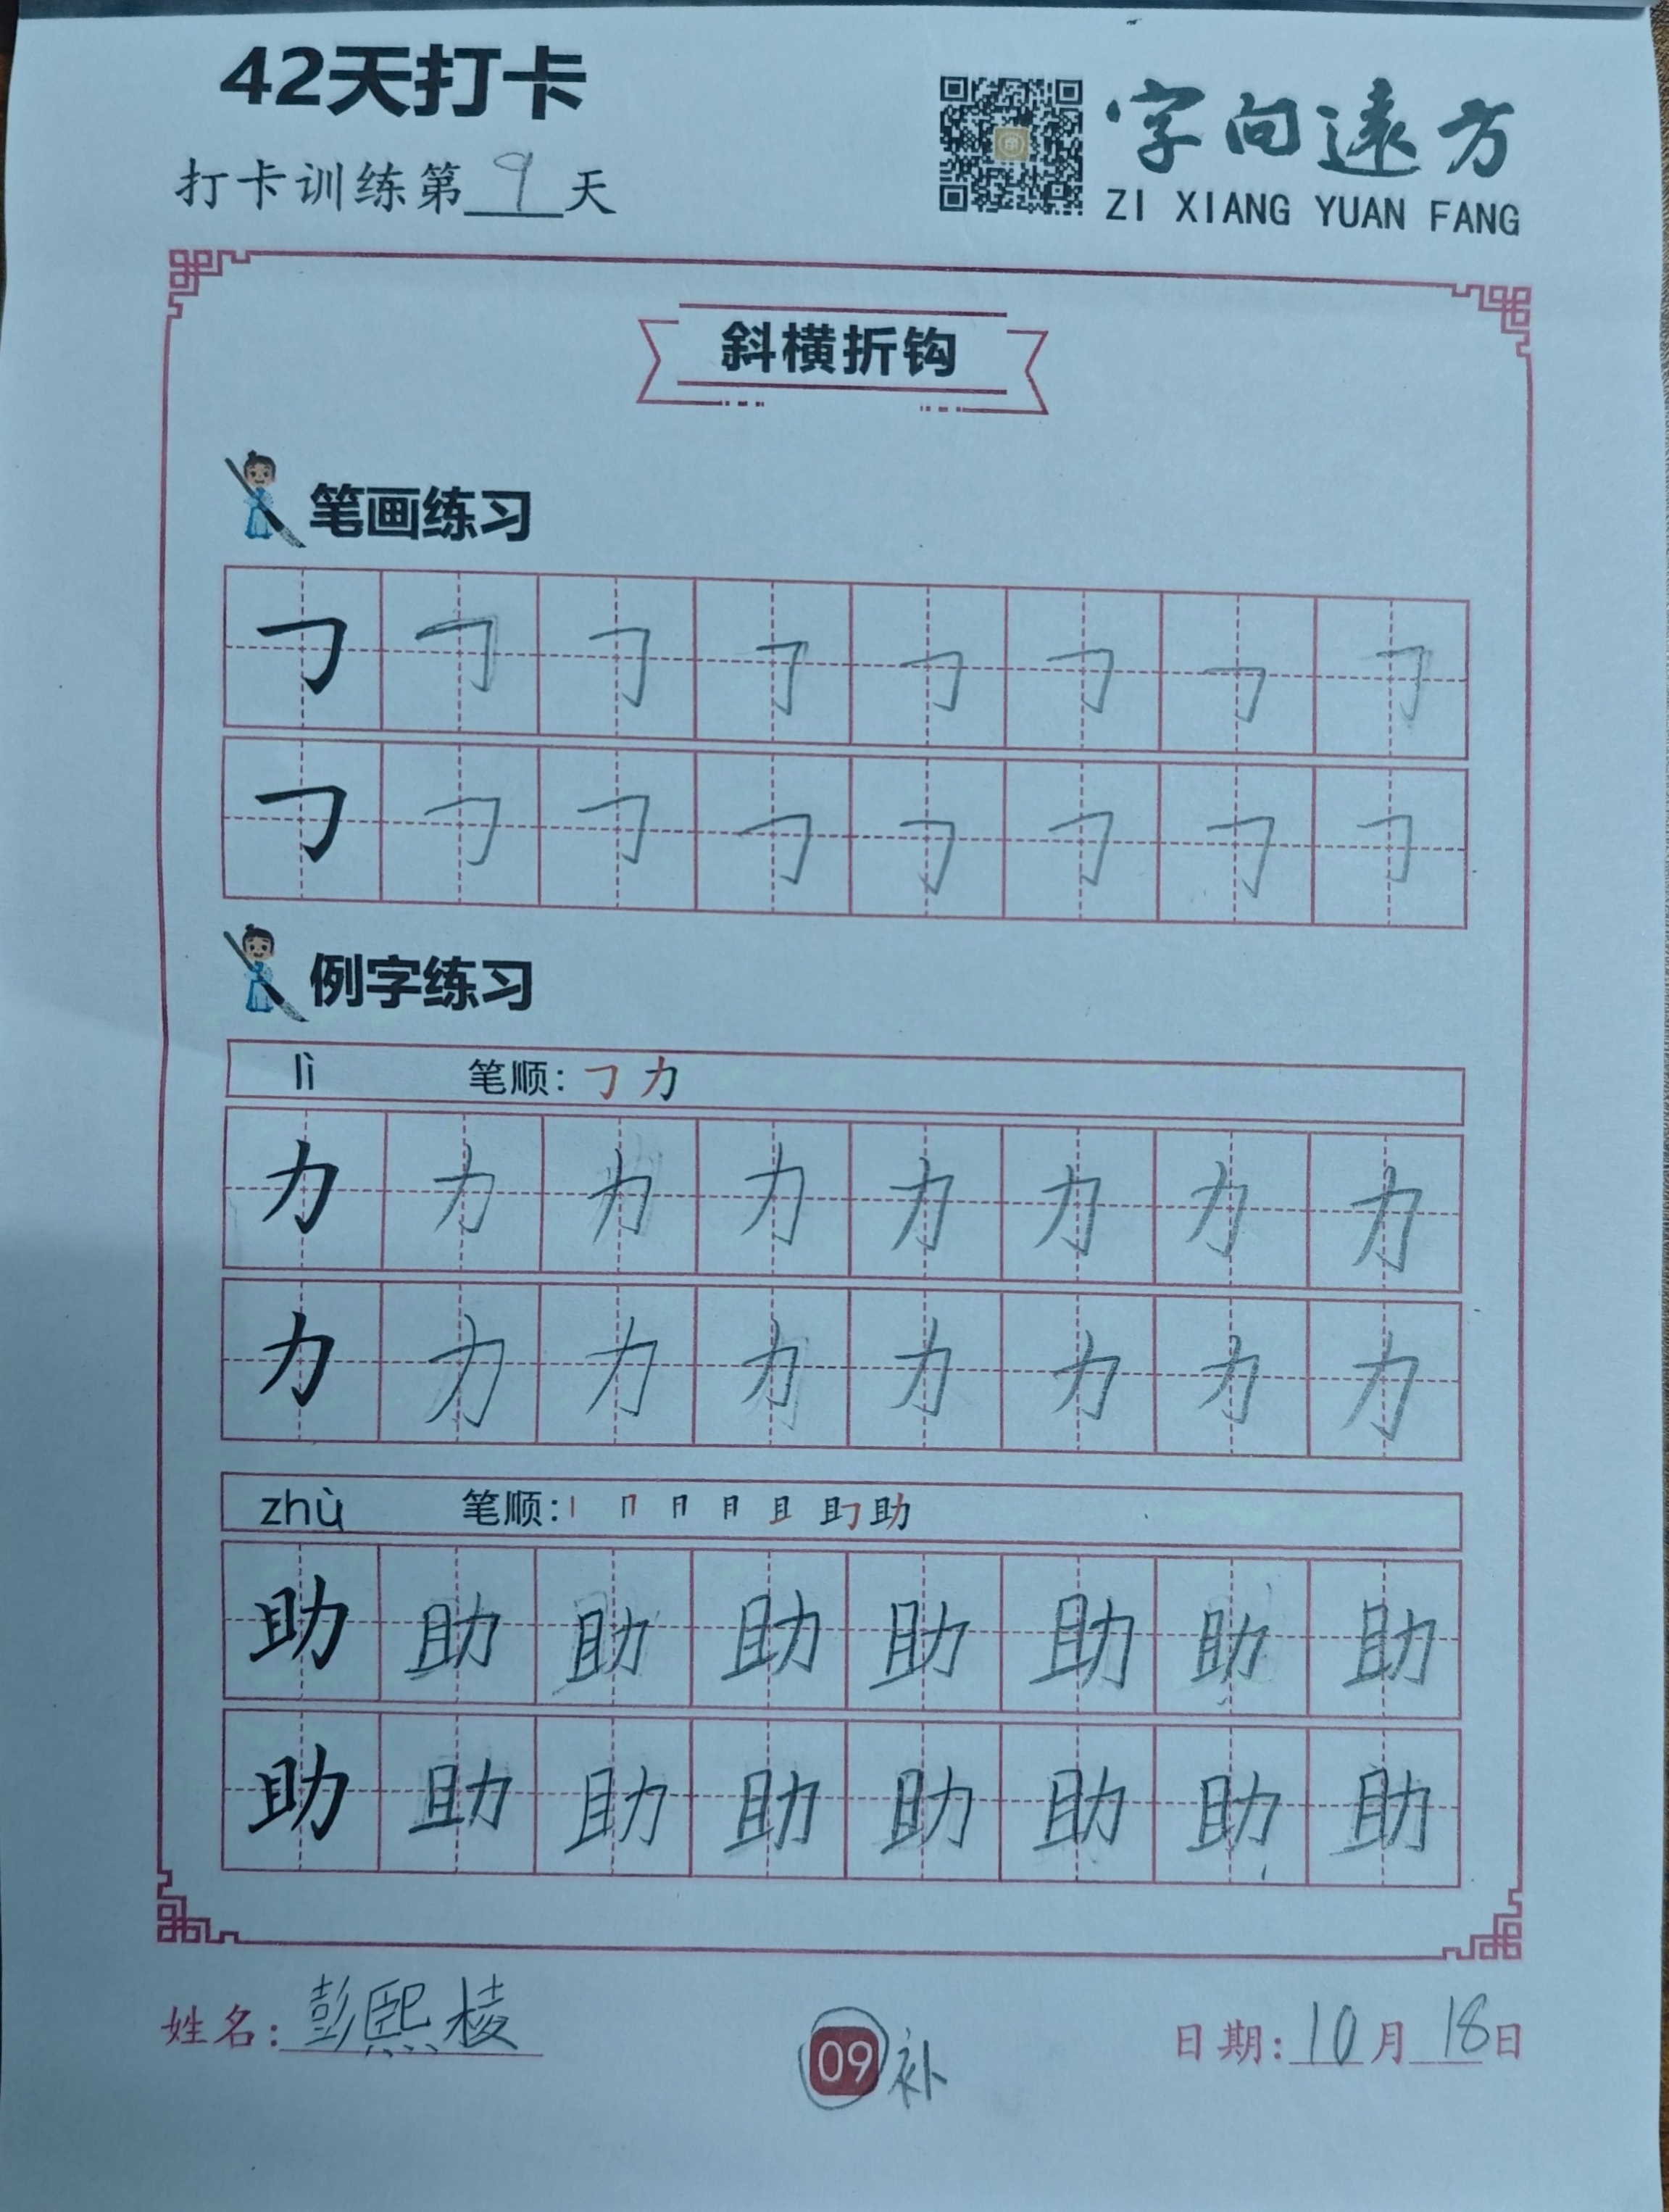 42天打卡
打卡训练第9天
字向遠方
ZI XIANG YUAN FANG
斜横折钩
笔画练习
㇆ ㇆ ㇆ ㇆ ㇆ ㇆ ㇆ ㇆
㇆ ㇆ ㇆ ㇆ ㇆ ㇆ ㇆ ㇆
例字练习
lì 笔顺: ㇆ 力
力 力 力 力 力 力 力 力
力 力 力 力 力 力 力 力
zhù 笔顺: 丨 冂 月 且 助
助 助 助 助 助 助 助 助
助 助 助 助 助 助 助 助
姓名: 彭熙棱
09 补
日期: 10月18日